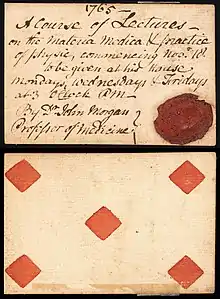 1765
A Course of Lectures
on the Materia Medica & practice
of physic, commencing Nov. 18.
to be given at his house
mondays, wednesdays & Fridays
at 3 o'Clock P.M.
By Dr. John Morgan
Professor of Medicine